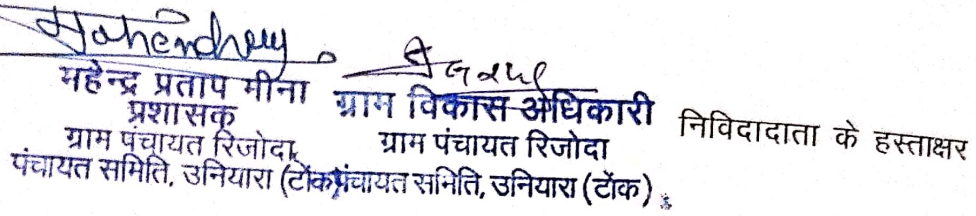 Mahendra
महेन्द्र प्रताप मीना
प्रशासक
ग्राम पंचायत रिजोदा
पंचायत समिति, उनियारा (टोंक)
ग्राम विकास अधिकारी
ग्राम पंचायत रिजोदा
पंचायत समिति, उनियारा (टोंक)
निविदादाता के हस्ताक्षर